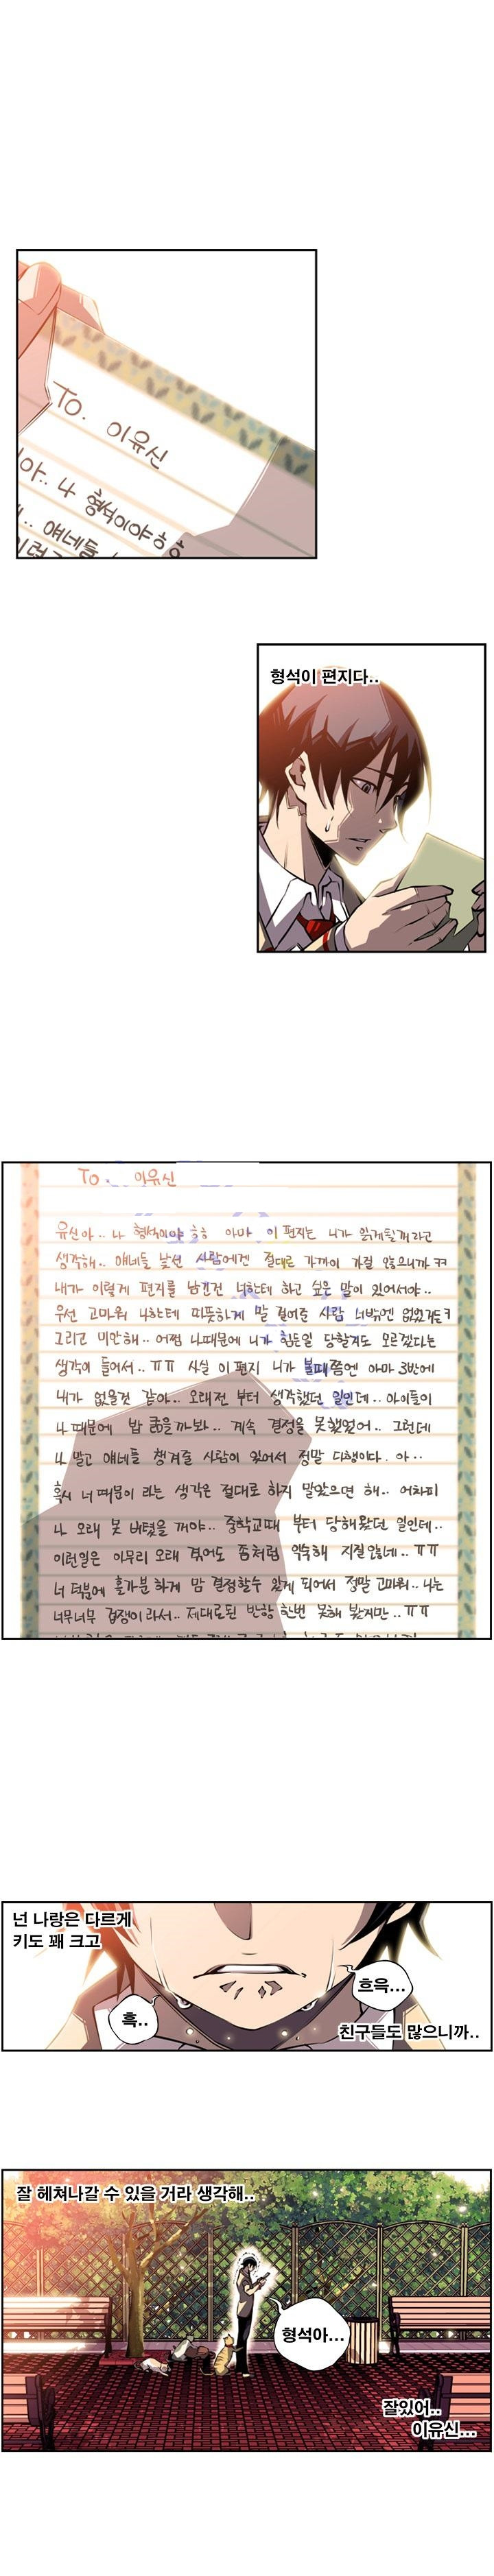 TO. 이유신
아.. 나 형석이야 ㅎㅎ
.. 얘네들
형석이 편지다..
To. 이유신
유신아.. 나 형석이야 ㅎㅎ 아마 이 편지는 니가 읽게될꺼라고
생각해.. 얘네들 낯선 사람에겐 절대로 가까이 가질 않으니까 ㅋㅋ
내가 이렇게 편지를 남긴건 너한테 하고 싶은 말이 있어서야..
우선 고마워 나한테 따뜻하게 말 걸어준 사람 너밖엔 없었거든
그리고 미안해.. 어쩜 나때문에 니가 힘든일 당할지도 모르겠다는
생각이 들어서.. ㅠㅠ 사실 이 편지 니가 볼때쯤엔 아마 3반에
내가 없을것 같아.. 오래전 부터 생각했던 일인데.. 아이들이
나 때문에 밥 굶을까봐.. 계속 결정을 못했었어.. 그런데
나 말고 얘네들 챙겨줄 사람이 있어서 정말 다행이다. 아..
혹시 너 때문이 라는 생각은 절대로 하지 말았으면 해.. 어차피
나 오래 못 버텼을 꺼야.. 중학교때 부터 당해왔던 일인데..
이런일은 아무리 오래 겪어도 좀처럼 익숙해 지질 않네.. ㅠㅠ
너 덕분에 홀가분하게 맘 결정할수 있게 되어서 정말 고마워.. 나는
너무너무 겁쟁이라서.. 제대로된 반항 한번 못해 봤지만.. ㅠㅠ
넌 나랑은 다르게
키도 꽤 크고
흑..
흐윽...
친구들도 많으니까..
잘 헤쳐나갈 수 있을 거라 생각해..
형석아...
잘있어..
이유신...